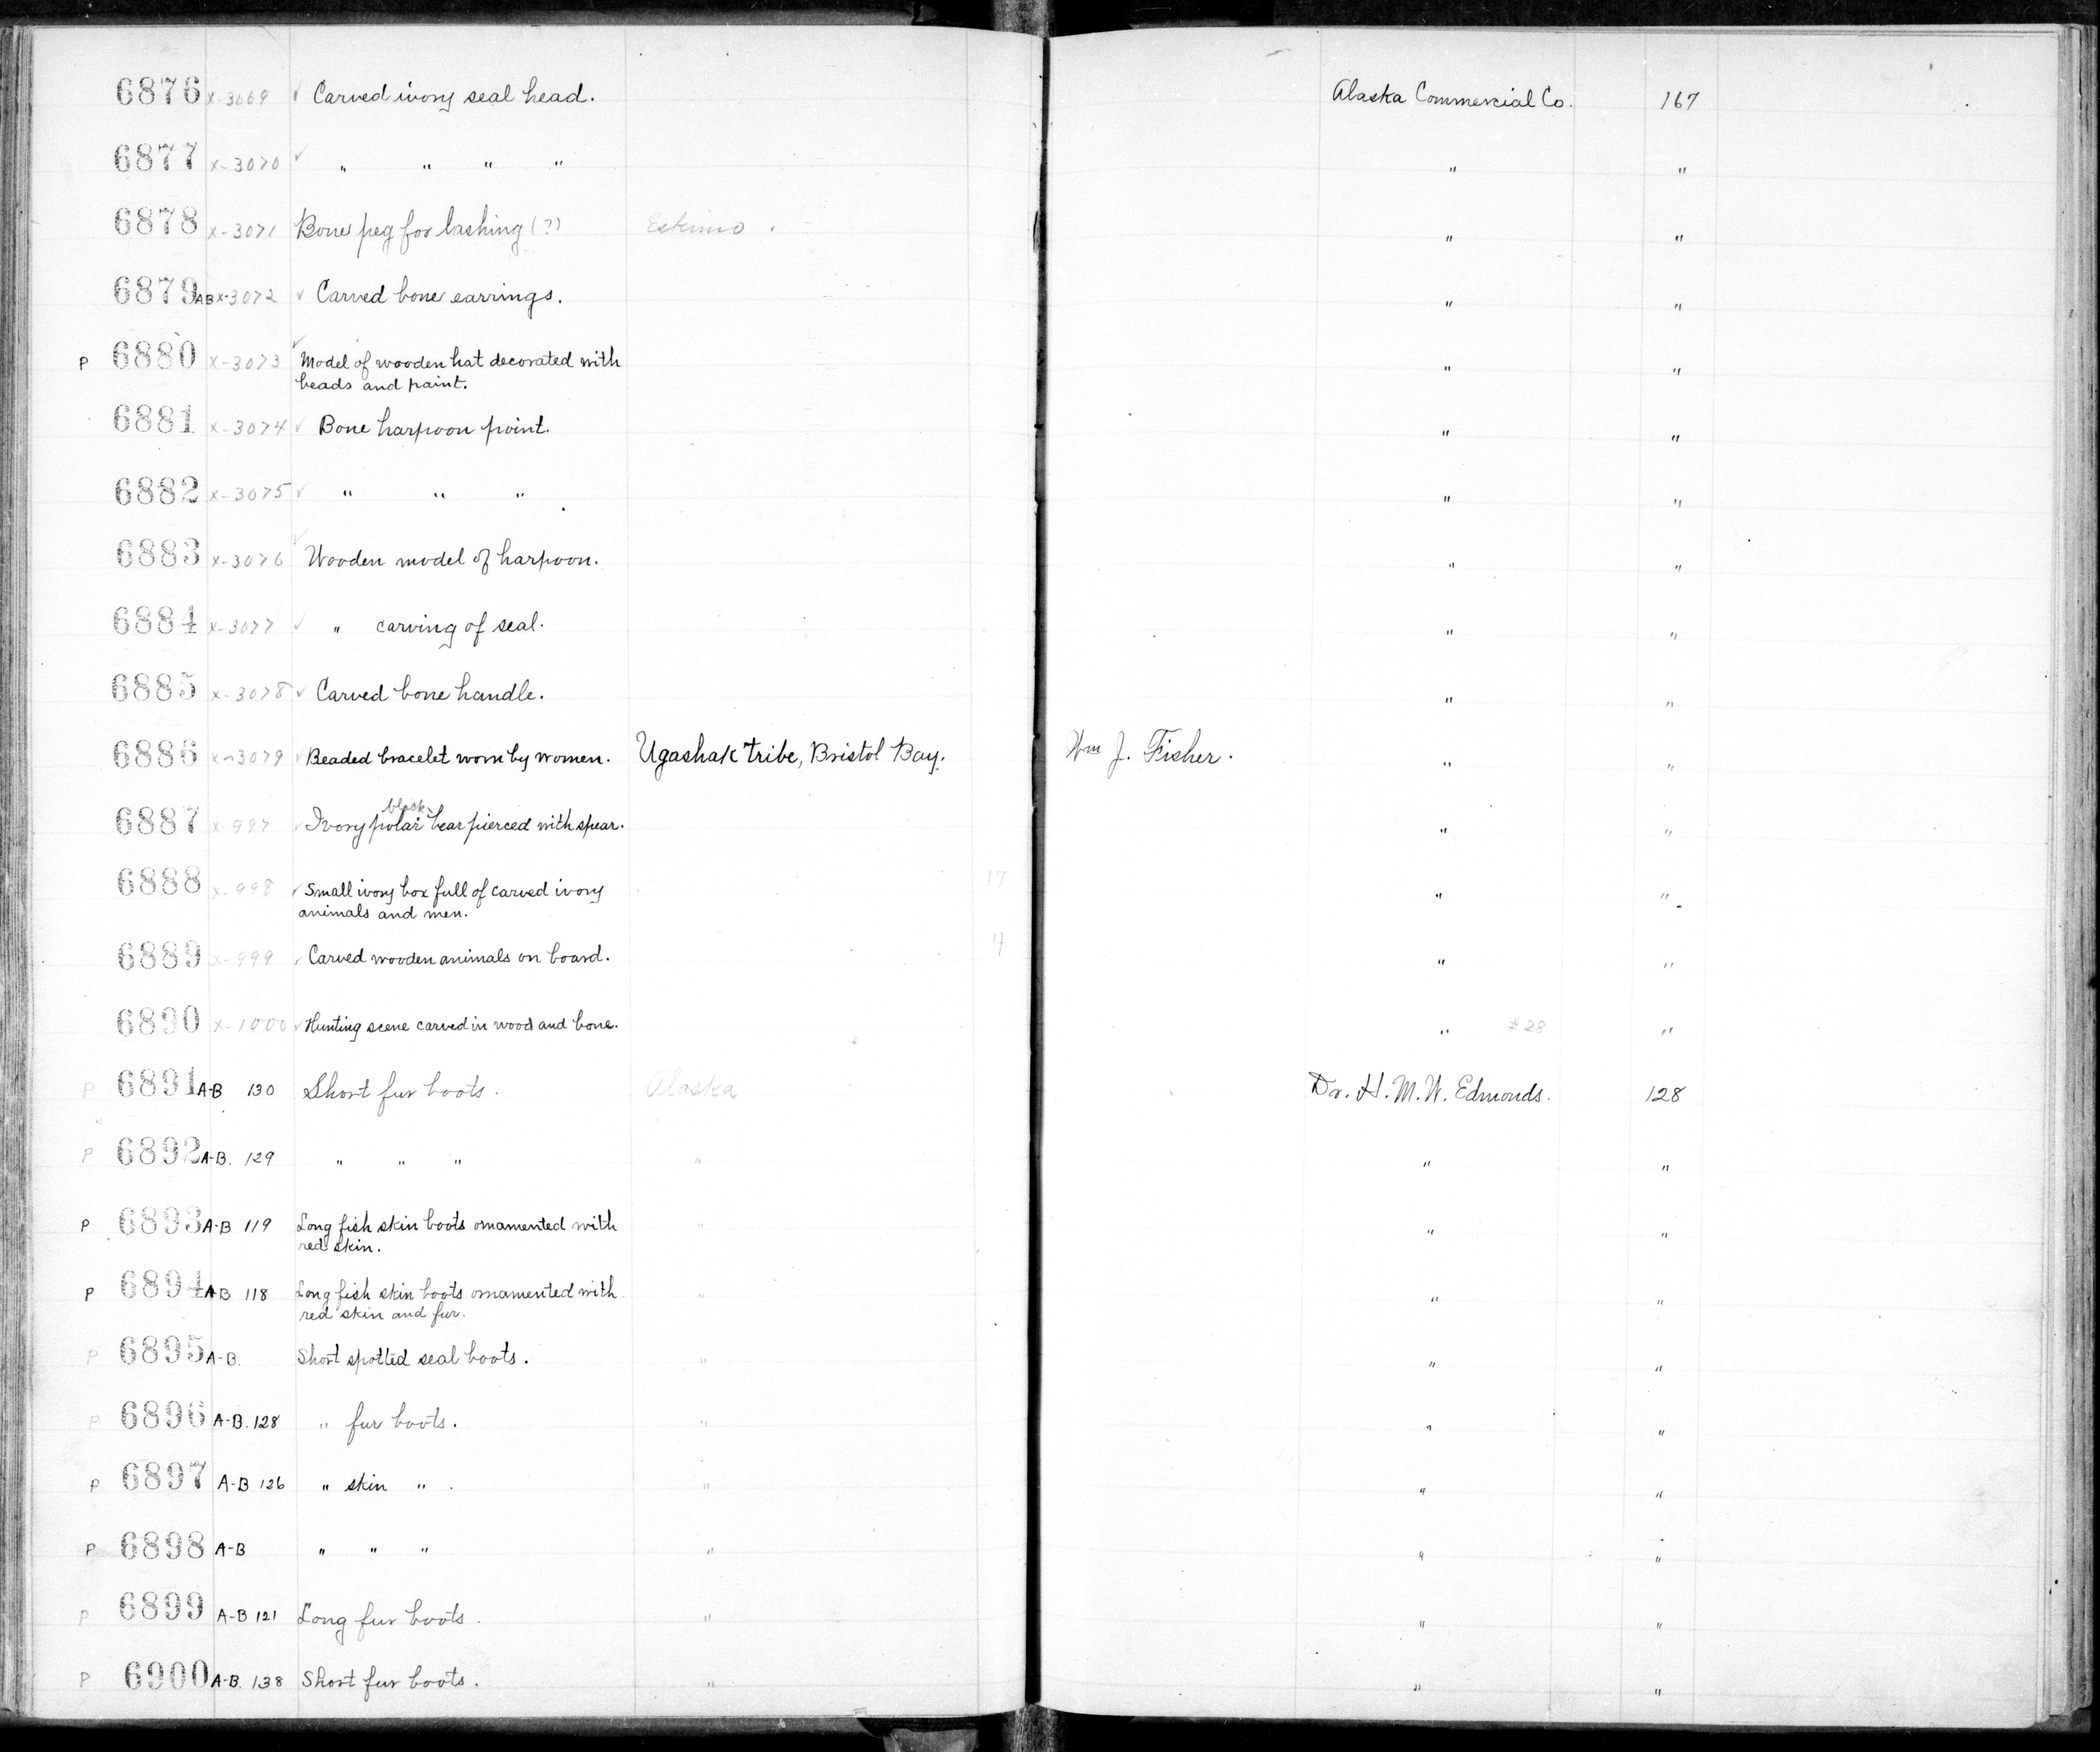 6876 x-3069 ✓ Carved ivory seal head. Alaska Commercial Co. 167
6877 x-3070 ✓ " " " " " "
6878 x-3071 Bone peg for lashing (?) Eskimo. " "
6879 AB x-3072 ✓ Carved bone earrings. " "
P 6880 x-3073 ✓ Model of wooden hat decorated with " "
beads and paint.
6881 x-3074 ✓ Bone harpoon point. " "
6882 x-3075 ✓ " " " " "
6883 x-3076 ✓ Wooden model of harpoon. " "
6884 x-3077 ✓ " carving of seal. " "
6885 x-3078 ✓ Carved bone handle. " "
6886 x-3079 ✓ Beaded bracelet worn by women. Ugashak tribe, Bristol Bay. Wm J. Fisher. " "
black
6887 x-997 ✓ Ivory polar bear pierced with spear. " "
6888 x-998 ✓ Small ivory box full of carved ivory 17 " "
animals and men.
6889 x-999 ✓ Carved wooden animals on board. " "
6890 x-1000 ✓ Hunting scene carved in wood and bone. " #28 "
P 6891 A-B 130 Short fur boots. Alaska Dr. H. M. W. Edmonds. 128
P 6892 A-B. 129 " " " " " "
P 6893 A-B 119 Long fish skin boots ornamented with " " "
red skin.
P 6894 AB 118 Long fish skin boots ornamented with " " "
red skin and fur.
P 6895 A-B. Short spotted seal boots. " " "
P 6896 A-B. 128 " fur boots. " " "
P 6897 A-B 126 " skin " . " " "
P 6898 A-B " " " " " "
P 6899 A-B 121 Long fur boots. " " "
P 6900 A-B. 138 Short fur boots. " " "